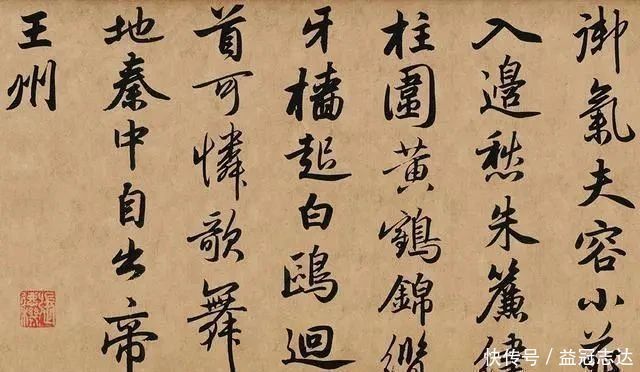 御氣夫容小
入邊愁朱簾繡
柱圍黃鶴錦纜
牙檣起白鷗迴
首可憐歌舞
地秦中自古帝
王州
快传号／益冠志达